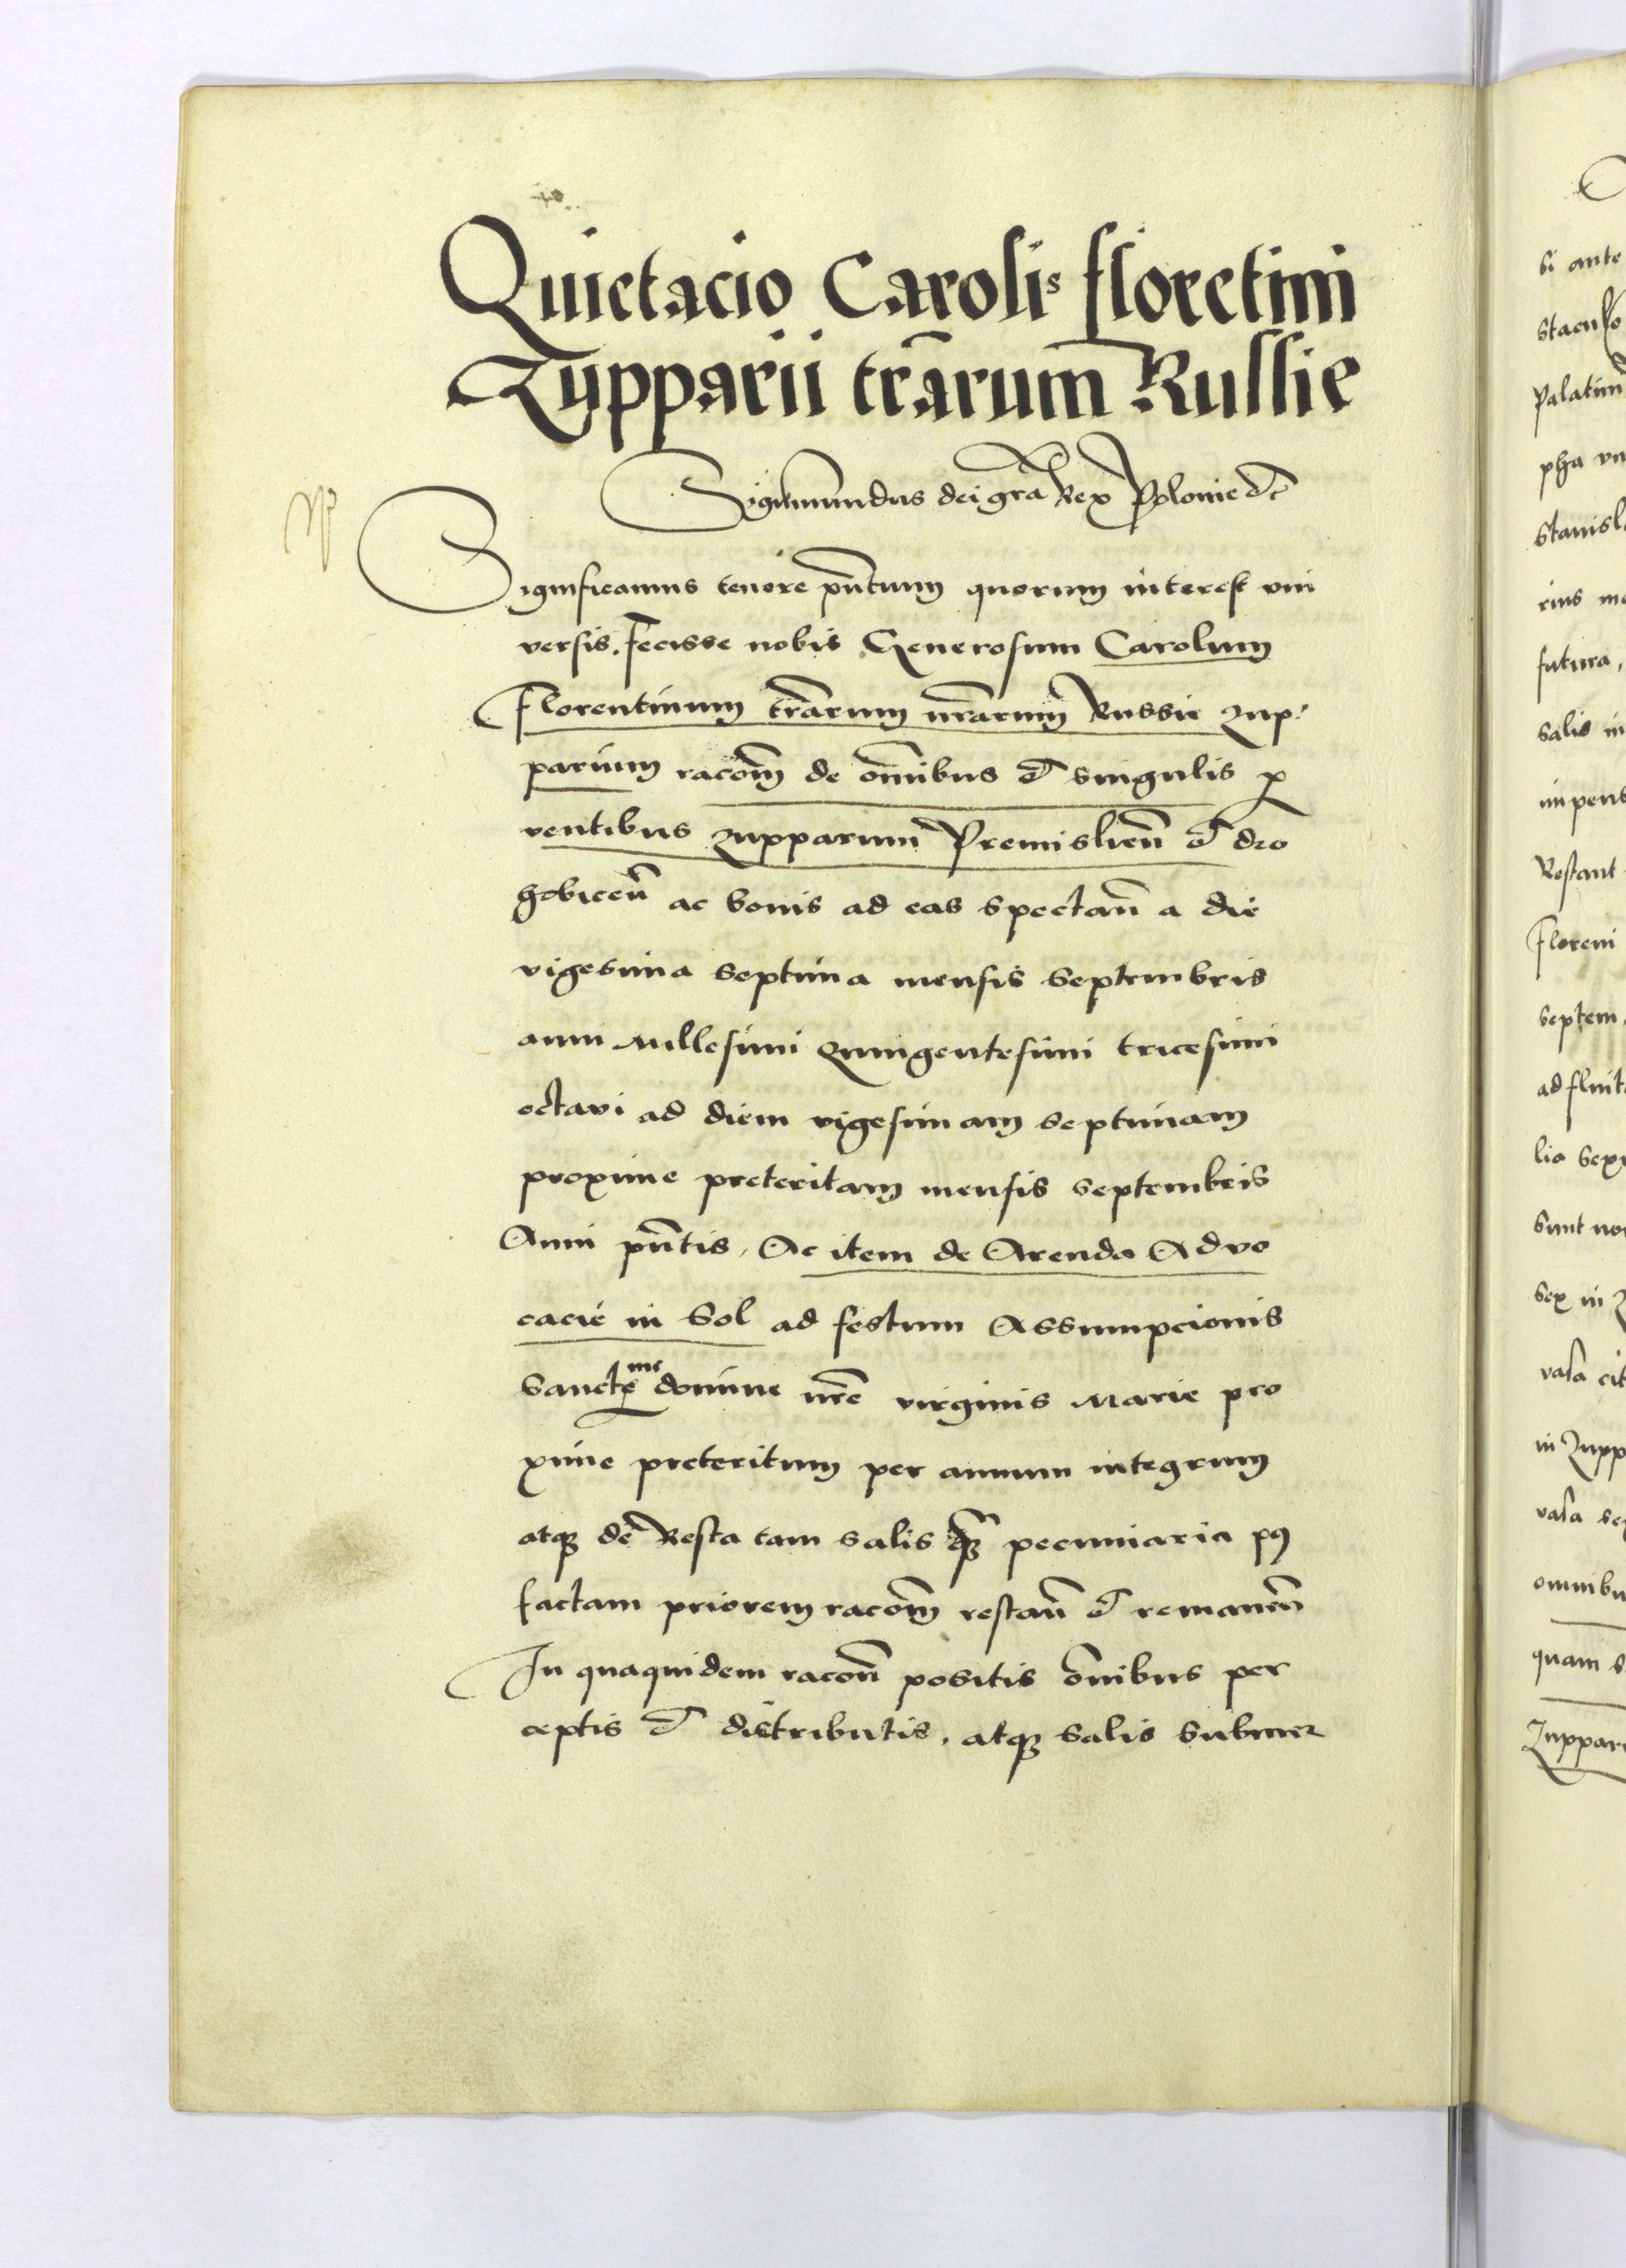 Quietacio Caroli⸱s floretini
Zupparii trãrum Russie
Sigismundus dei gr̃a Rex Polonie &c
Significamus tenore pñtium quorum interest vni
versis. Fecisse nobis Generosum Carolum
Florentinum trãrum nrãrum Russie zup
parium racõm de om̃ibus & singulis pro
ventibus zupparum Premislieñ & dro
hobiceñ ac bonis ad eas spectañ a die
vigesima septima mensis Septembris
anni Millesimi Quingentesimi tricesimi
octavi ad diem vigesimam septimam
proxime preteritam mensis Septembris
Anni pñtis, Ac item de Arenda Advo
cacie in Sol ad festum Assumpcionis
Sanctẹ me domine nr̃e virginis Marie pro
xime preteritum per annum integrum
atqꝫ de Resta tam salis qꝫ pecuniaria pꝰ
factam priorem racõm restañ & remaneñ
In quaquidem racoñ positis om̃ibus per
ceptis & distributis, atqꝫ salis
bi ante
Palatin
pha vn
Stanisl
rius me
futura,
salis in
impens
Restant
Floreni
septem
ad fluit
lio sex
sunt no
sex in Z
vasa cit
in Zupp
vasa se
omnibu
quam s
Zuppar